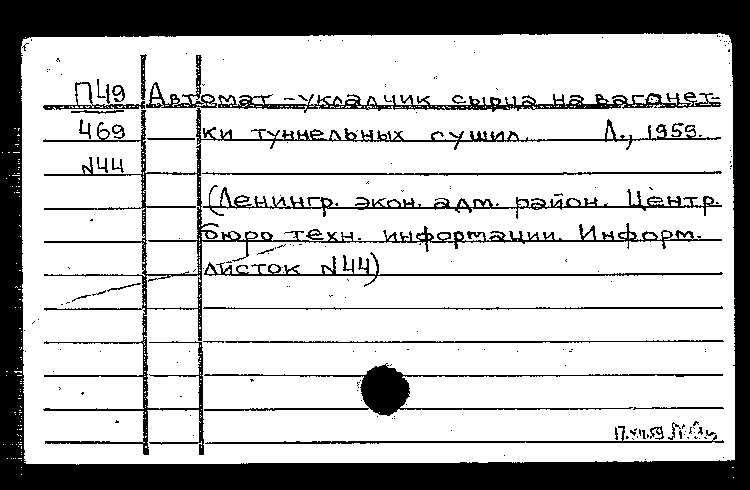 П49 Автомат-укладчик сырца на вагонет-
469 ки туннельных сушил. Л., 1959.
N44
(Ленингр. экон. адм. район. Центр.
бюро техн. информации. Информ.
листок N44)